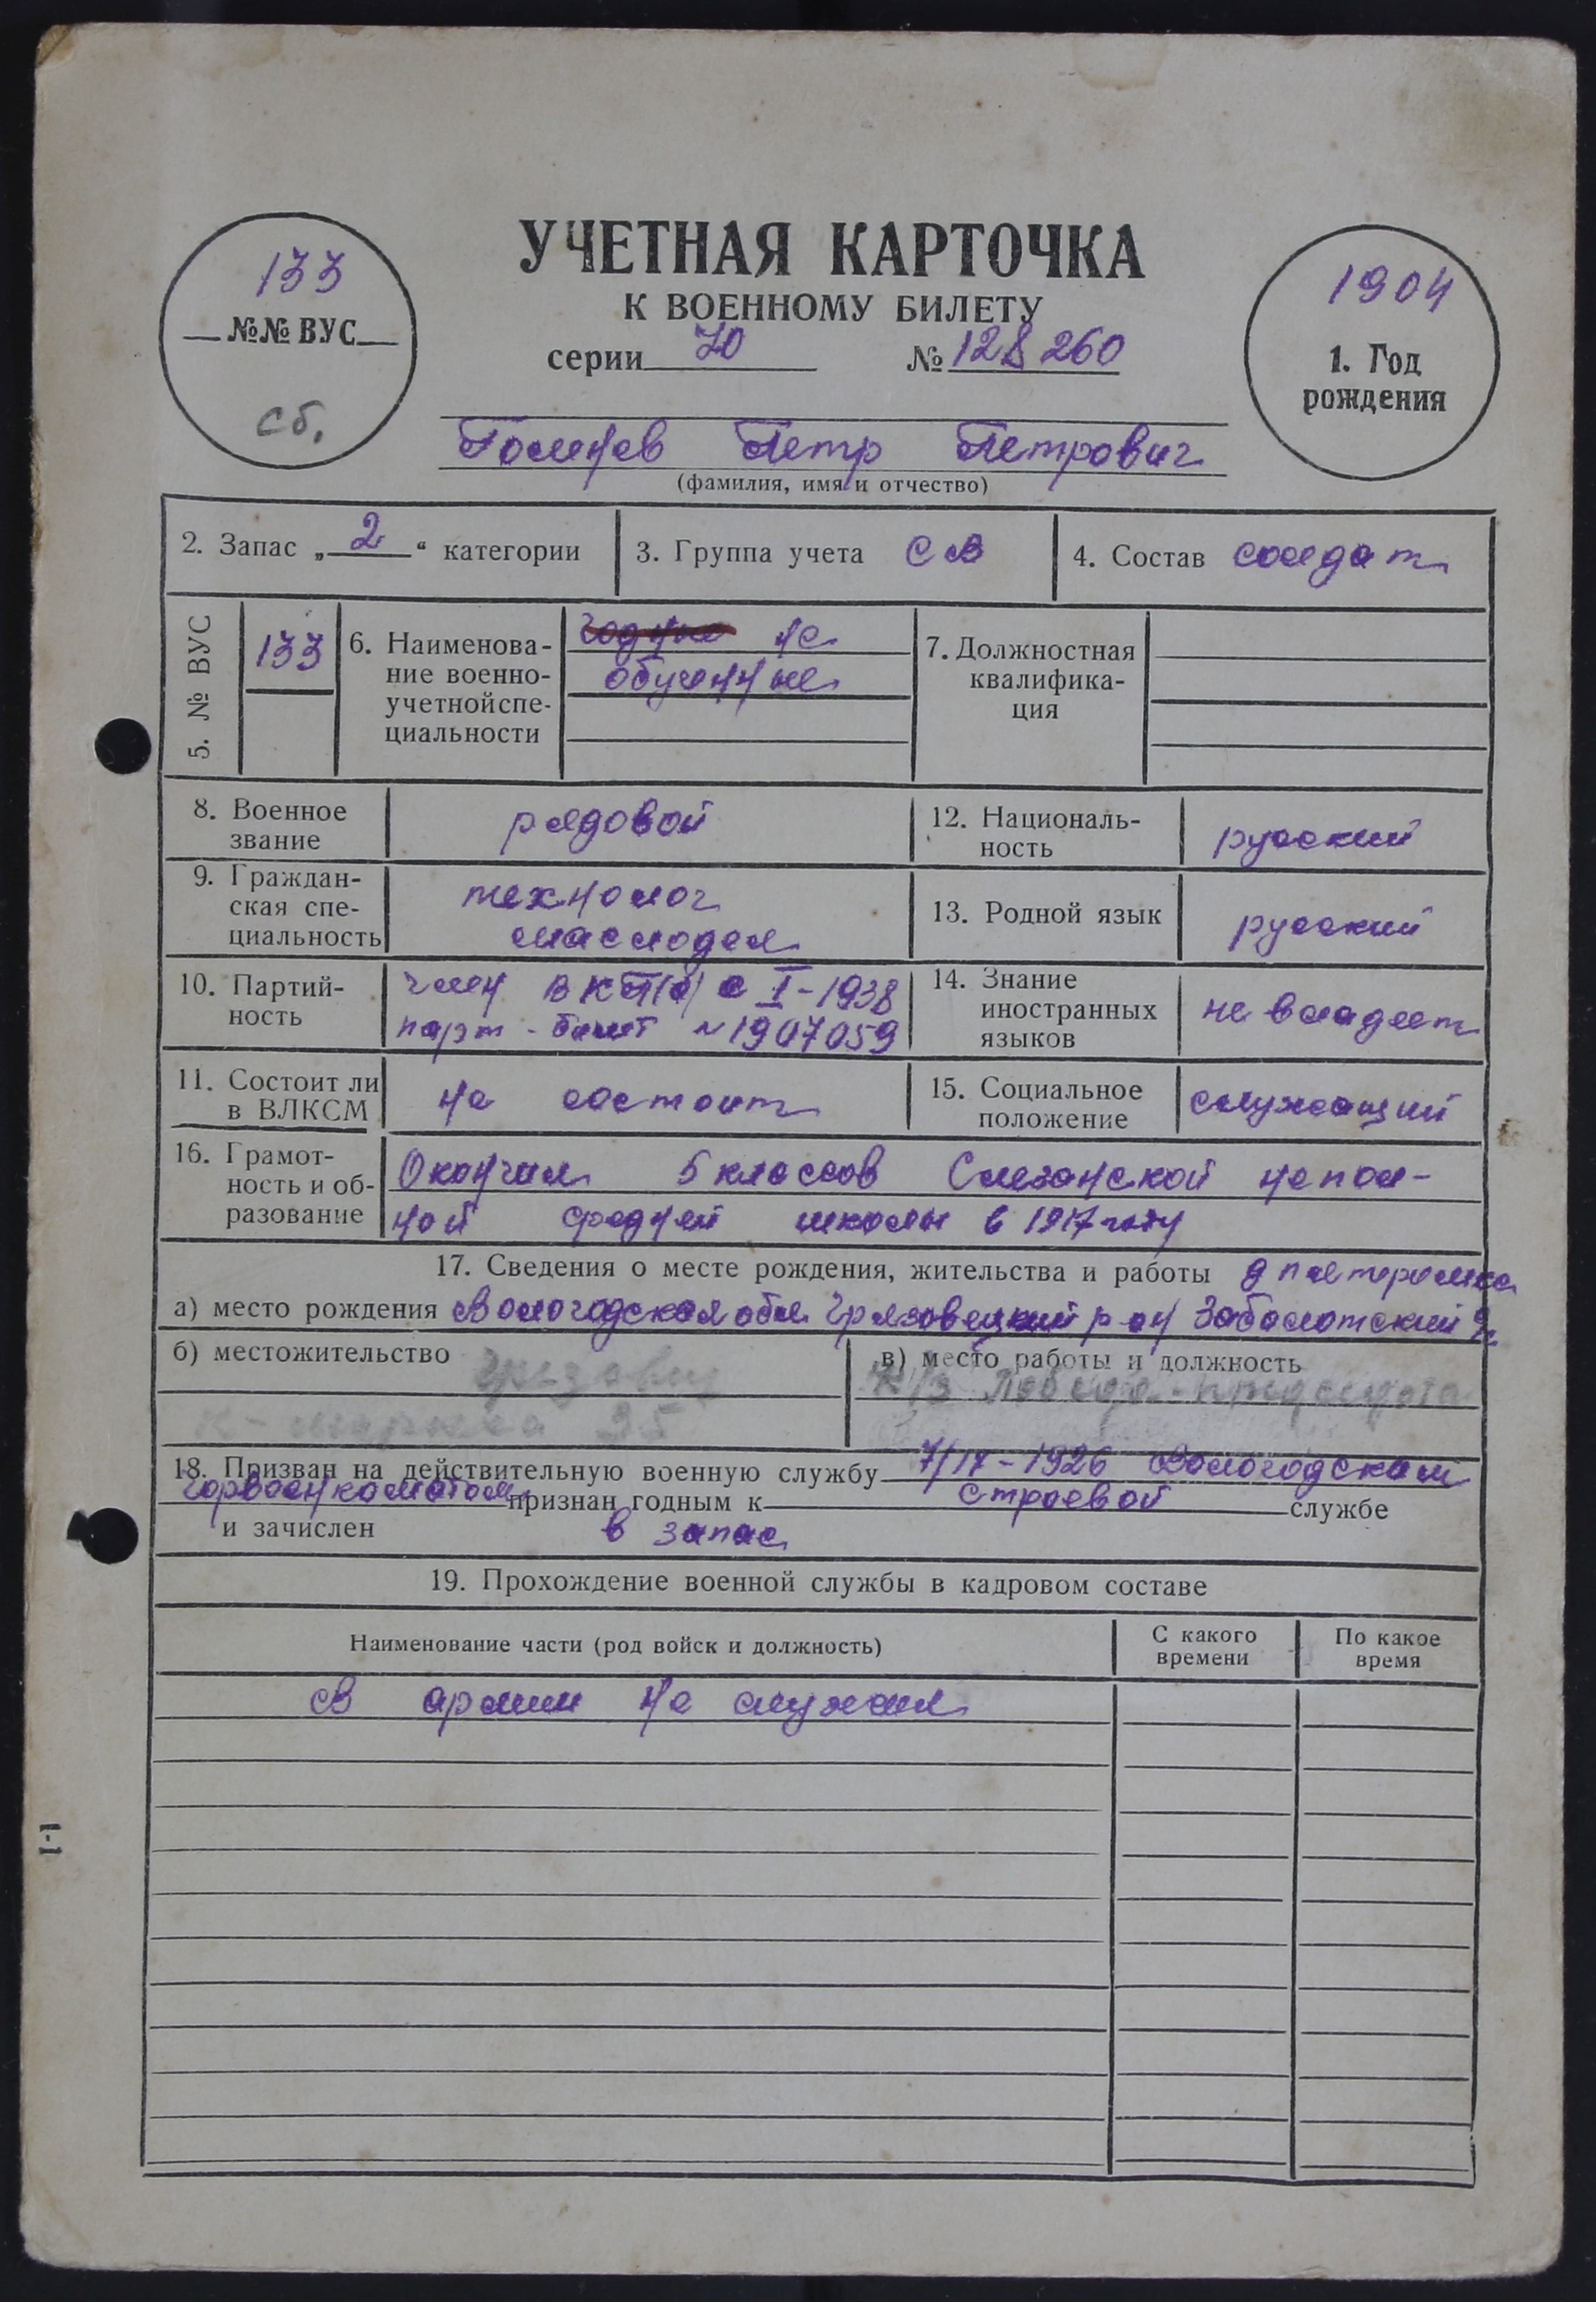 133
№№ ВУС
сб.
УЧЕТНАЯ КАРТОЧКА
К ВОЕННОМУ БИЛЕТУ
серии 70 № 128260
1904
1. Год
рождения
Петр Петрович
(фамилия, имя и отчество)
2. Запас „ 2 “ категории
3. Группа учета СВ
4. Состав солдат
5. № ВУС
133
6. Наименова-
ние военно-
учетной спе-
циальности
годные не
обученные
7. Должностная
квалифика-
ция
8. Военное
звание
рядовой
12. Националь-
ность
русский
9. Граждан-
ская спе-
циальность
технолог
маслодел
13. Родной язык
русский
10. Партий-
ность
член ВКП(б) с I-1938
парт-билет № 1907059
14. Знание
иностранных
языков
не владеет
11. Состоит ли
в ВЛКСМ
не состоит
15. Социальное
положение
служащий
16. Грамот-
ность и об-
разование
Окончил 5 классов непол-
ной средней школы в 1917 году
17. Сведения о месте рождения, жительства и работы
а) место рождения Вологодская обл Грязовецкий р-он
б) местожительство
к-маркса 35
в) место работы и должность
18. Призван на действительную военную службу 1926 Вологодским
горвоенкоматом признан годным к строевой службе
и зачислен в запас
19. Прохождение военной службы в кадровом составе
Наименование части (род войск и должность)
С какого
времени
По какое
время
В армии не служил
I-I